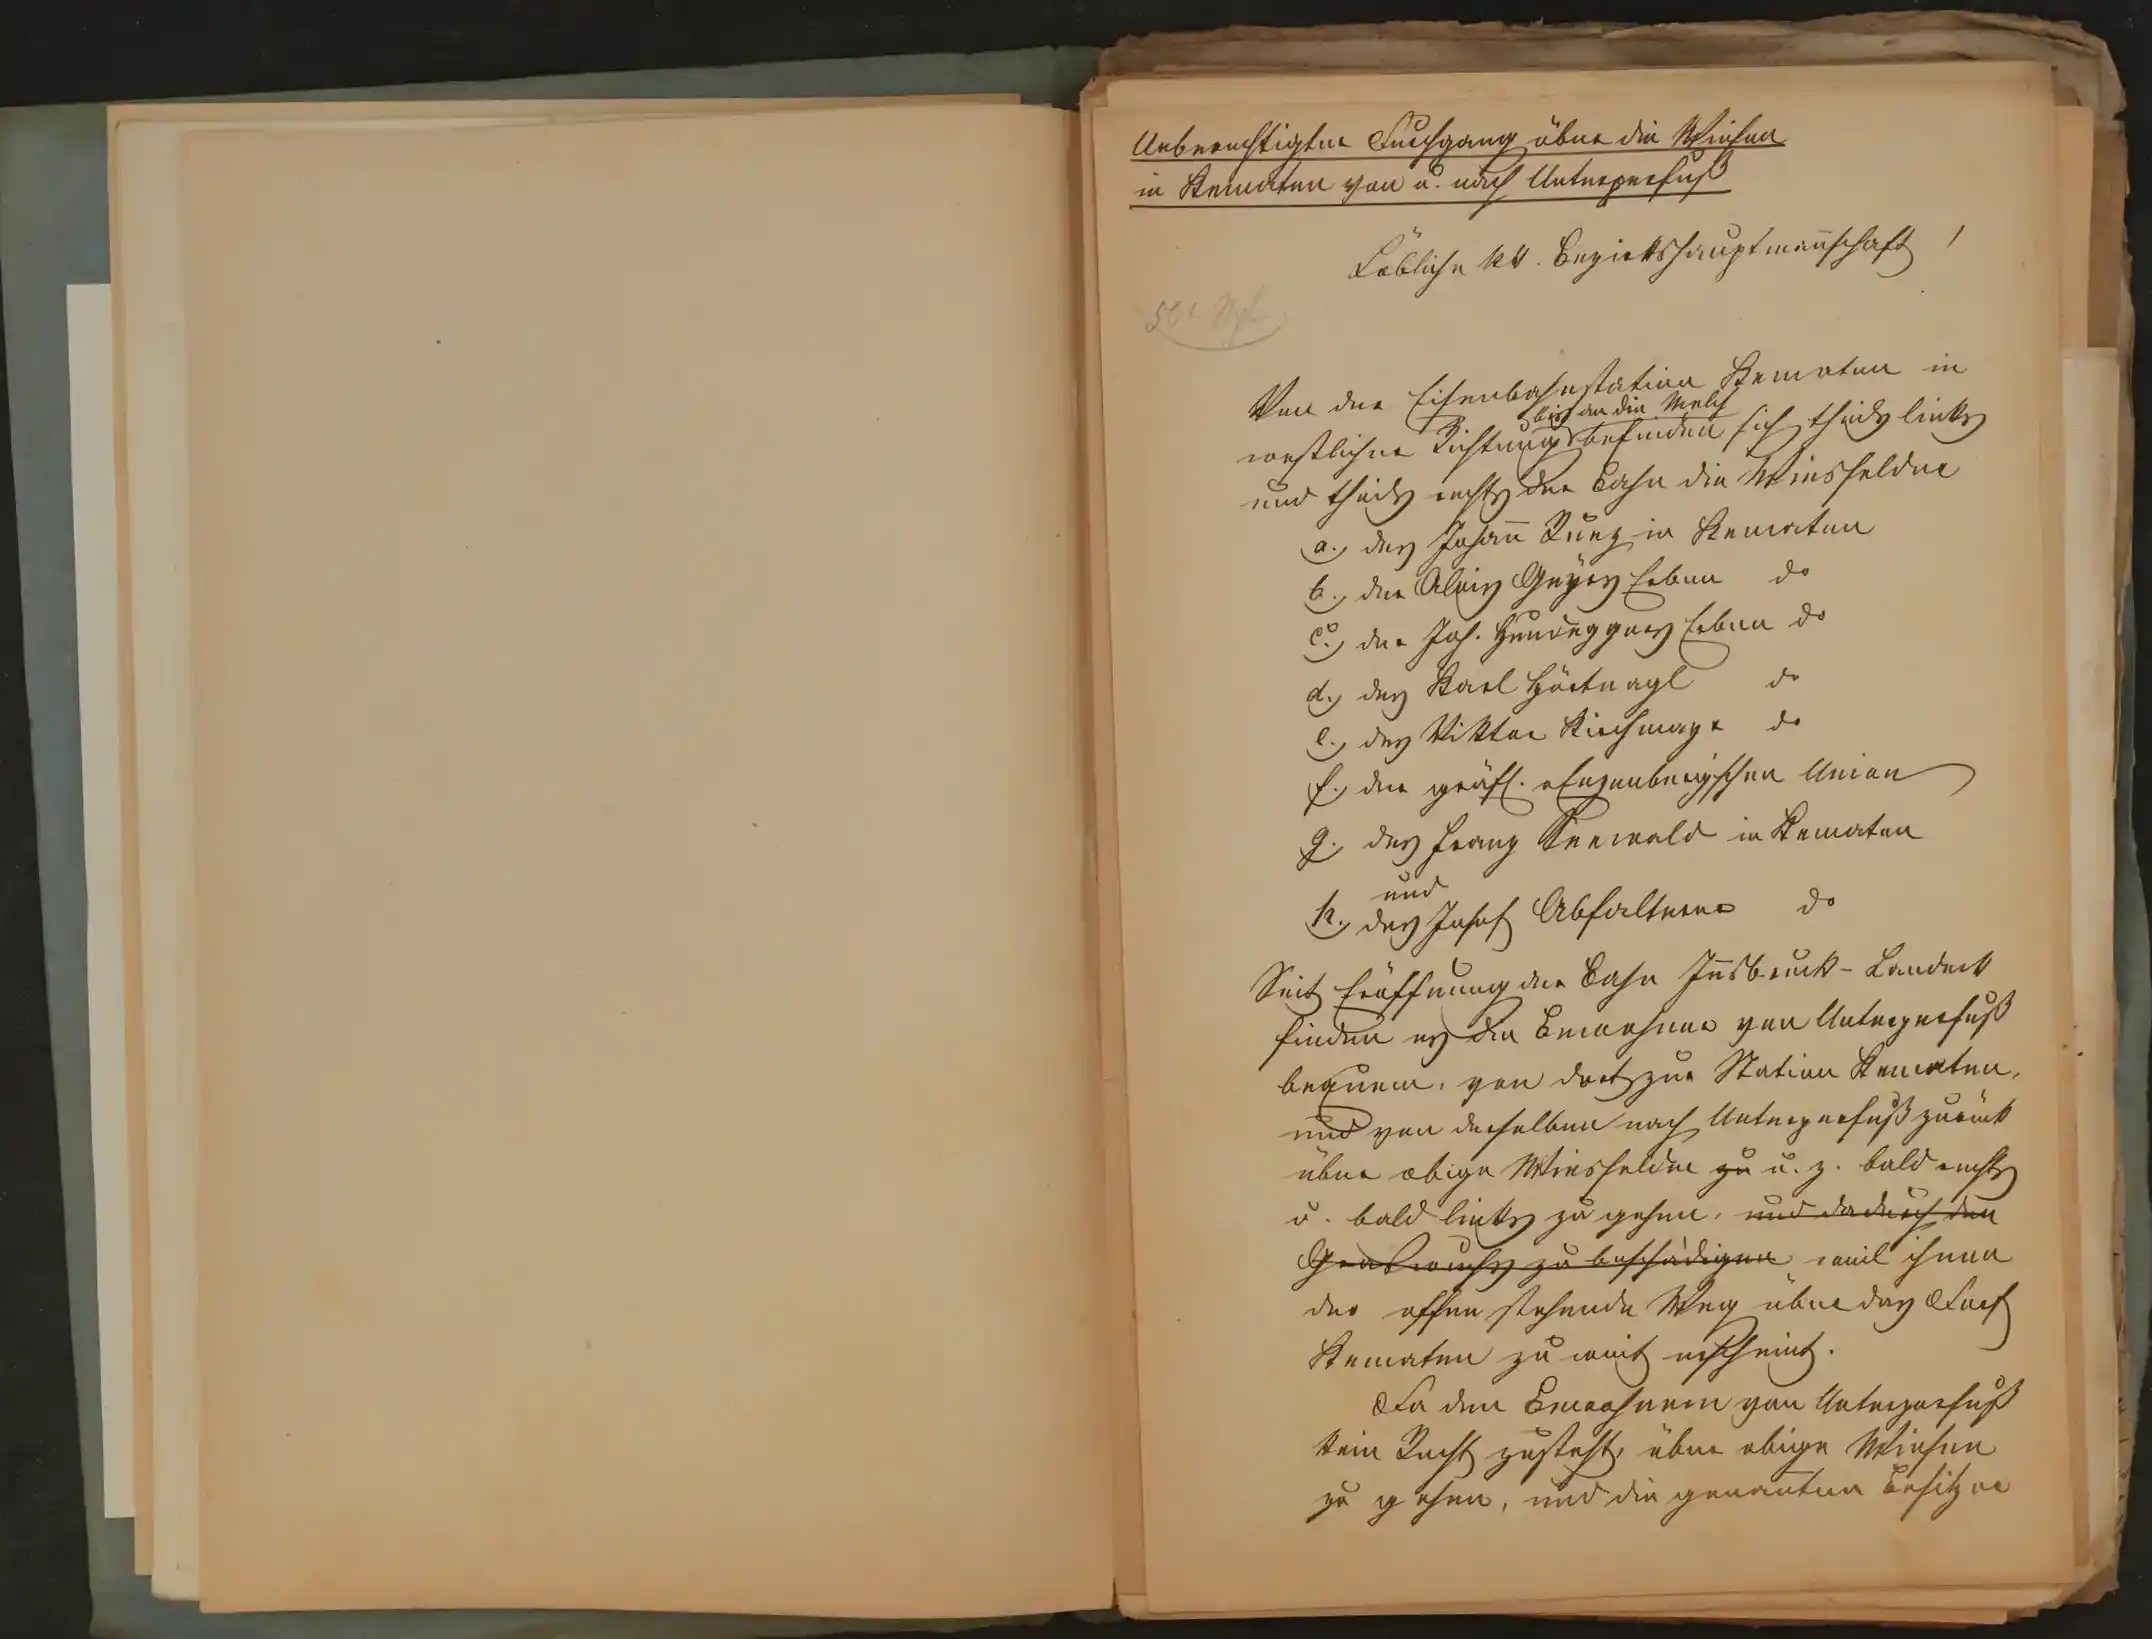 Unberechtigter Durchgang über die Wiesen
in Kematen von u. nach Unterperfuß
Löbliche kk. Bezirkshauptmannschaft!
Von der Eisenbahnstation Kematen in
bis an die Melch
westlicher Richtung befinden sich theils links
und theils rechts der Bahn die Wiesfelder
a., des Johann Ruez in Kematen
b., der Alois Geÿrs Erben do
c., der Joh. Hundeggers Erben do
d., des Karl Hörtnagl do
e., des Viktor Kirchmayr do
f., der gräfl. Enzenbergschen Union
g., des Franz Seewald in Kematen
und
h., des Josef Abfalterer do
Seit Eröffnung der Bahn Innsbruck-Landeck
finden es die Bewohner von Unterperfuß
bequem, von dort zur Station Kematen,
und von derselben nach Unterperfuß zurück
über obige Wiesfelder zu u. z. bald rechts
u. bald links zu gehen, und dadurch den
Graswuchs zu beschädigen weil ihnen
der offen stehende Weg über das Dorf
Kematen zu weit erscheint.
Da den Bewohnern von Unterperfuß
kein Recht zusteht, über obige Wiesen
zu gehen, und die genannten Besitzer